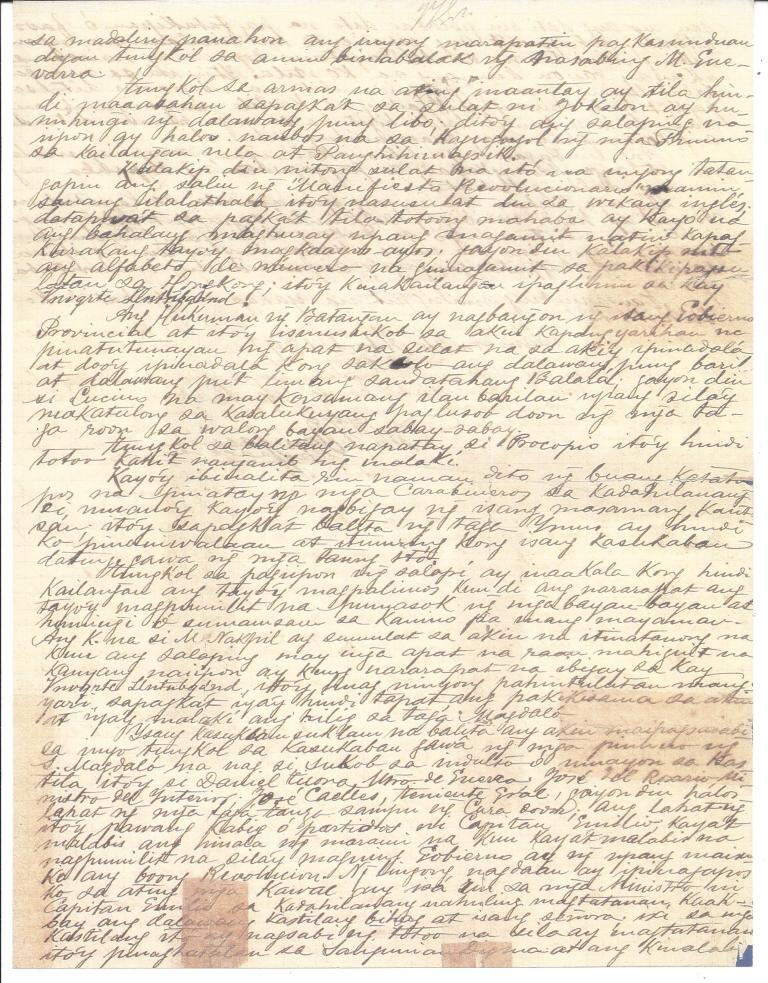 sa madaling panahon ang inyong marapatin pagkasunduan
diyan tungkol sa anim binabalak ng nasabing M. Gue-
varra
Tungkol sa armas na ating inaantay ay tila hin-
di maaasahan sapagkat sa sulat ni Jokson ay hu-
mihingi ng dalawang pung libo, dito'y ang salaping na-
iipon ay halos naubos na sa kagugugol ng mga
sa kailangan nila at Panghihimagsik.
Kalakip din nitong sulat na ito na inyong tatang-
gapin ang salin ng "Manifiesto Revolucionario"
sanang ilalathala, ito'y nasusulat din sa wikang ingles,
datapwat sa pagkat tila totoong mahaba ay kayo na
ang bahalang maghusay upang magamit natin kapag
karakang tayo'y magkaayos-ayos; gayon din kalakip nito
ang alfabeto de número na ginagamit sa pakikipagsu-
latan sa Hongkong; ito'y kinakailangan ipaglihim sa kay
Vngrte Lintubgànd.
Ang Hukuman ng Batangan ay nagbangon ng isang Gobierno
Provincial at ito'y sumusukob sa aking kapangyarihan na
pinatutunayan ng apat na sulat na sa aki'y ipinadala
at doo'y ipinadala kong saklolo ang dalawang pung baril
at dalawang pu't limang sandatahang Balara; gayon din
si Cucuno na may karsamang ilan barilan upang sila'y
makatulong sa kasalukuyang paglusob doon ng mga ta-
ga roon sa walong bayan sabay-sabay.
Tungkol sa balitang napatay si Procopio ito'y hindi
totoo kahit nanganib ng malaki.
Kayo'y ibinalita rin naman dito ng buong katata-
pos na ipinatay ng mga Carabineros sa kadahilanang
si kayo'y nagbigay ng isang masamang kauti-
san, ito'y sapagkat balita ng taga Ymus ay hindi
ko pinaniwalaan at itinuring kong isang kasukaban
dating gawa ng mga taong ito.
Tungkol sa pagiipon ng salapi ay inaakala kong hindi
kailangan ang tayo'y magpalimos kundi ang nararapat ang
tayo'y magpumilit na pumasok ng mga bayan-bayan at
humingi o sumamsam sa kanino pa mang mayaman.
Ang K. na si M. Nakpil ay sumulat sa akin na itinatanong na
kun ang salaping may mga apat na raan mahigit na
kanyang naiipon ay kung nararapat na ibigay sa kay
Vngrte Lintubgànd, ito'y huag ninyong pahintulutan mang-
yari, sapagkat iya'y hindi tapat ang pakikisama sa atin
at iya'y malaki ang hilig sa taga Magdalo.
Ysang kasuklam suklam na balita ang aking maipagsasabi
sa inyo tungkol sa kasukaban gawa ng mga pinuno ng
S. Magdalo na nag si sukob sa indulto o umayon sa Kas-
tila, ito'y si Daniel Tirona, Mtro. de Guerra, José del Rosario Mi-
nistro del Interior, José Cailles, Teniente Gral., gayon din halos
lahat ng mga taga Tansa sampu ng Cura doon; ang lahat ng
ito'y pawang kabig ó partidos ni Capitan Emilio kaya't
malabis ang hinala ng marami na kun kaya't malabis na
nagpumilit na sila'y magning Gobierno ay ng upang maisu-
ko ang boong Revolucion. Ni ngayong nagdaan ay ipinagapos
ko sa ating mga Kawal ang isa din sa mga Ministro ni
Capitan Emilio sa kadahilanang nahuling magtatanan, kaak-
bay ang dalawang kastilang bihag at isang señora. isi sa mga
kastilang ito ay nagsabi ng totoo na sila ay magtatanan
ito'y pinagtatalan sa Sangunian Digma at ang kinala-